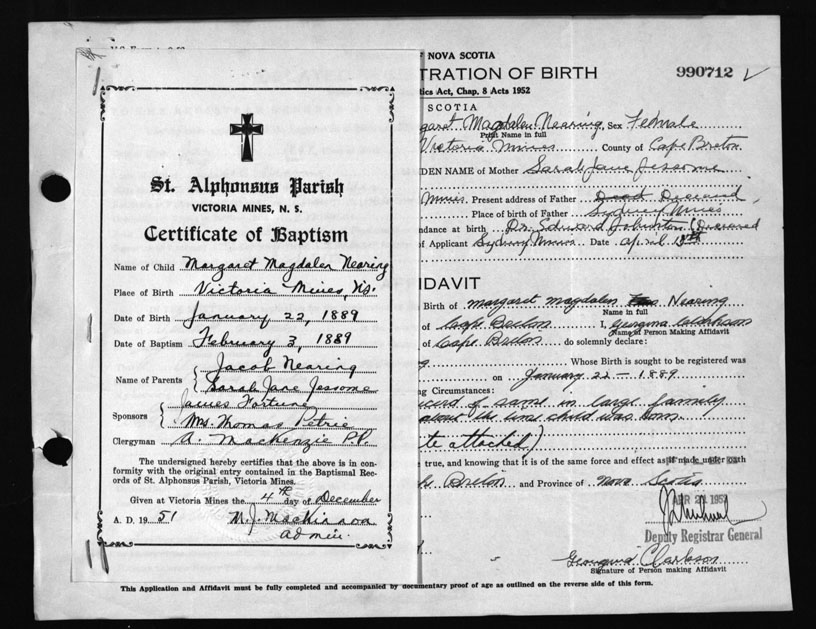 St. Alphonsus Parish
VICTORIA MINES, N. S.
Certificate of Baptism
Name of Child Margaret Magdalen Nearing
Place of Birth Victoria Mines, N.S.
Date of Birth January 22, 1889
Date of Baptism February 3, 1889
Jacob Nearing
Name of Parents
Sarah Jane Jessome
James Fortune
Sponsors
Mrs. Thomas Petrie
Clergyman A. MacKenzie P.P.
The undersigned hereby certifies that the above is in con-
formity with the original entry contained in the Baptismal Rec-
ords of St. Alphonsus Parish, Victoria Mines.
Given at Victoria Mines the 4th day of December
A. D. 19 51 M. J. MacKinnon
admin.
F NOVA SCOTIA
TRATION OF BIRTH 990712
tics Act, Chap. 8 Acts 1952
SCOTIA
garet Magdalen Nearing, Sex Female
Print Name in full
Victoria Mines County of Cape Breton
DEN NAME of Mother Sarah Jane Jessome
Mines. Present address of Father Deceased
Place of birth of Father Sydney Mines
ndance at birth Dr. Edward Johnston (Deceased
of Applicant Sydney Mines Date April 18th
FIDAVIT
Birth of Margaret Magdalen Nearing
Name in full
of Cape Breton I, Georgina Clarkson
Name of Person Making Affidavit
of Cape Breton do solemnly declare:
Whose Birth is sought to be registered was
on January 22 - 1889
ng Circumstances:
record of same in large family
about the time child was born.
te attached)
e true, and knowing that it is of the same force and effect as if made under oath
Breton and Province of Nova Scotia
APR 21 195
Deputy Registrar General
Georgina Clarkson
Signature of Person making Affidavit
This Application and Affidavit must be fully completed and accompanied by documentary proof of age as outlined on the reverse side of this form.